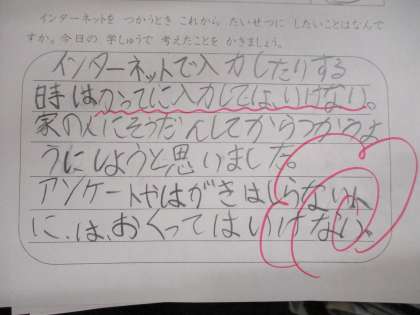 インターネットを つかうとき これから たいせつに したいことはなんで
すか。今日の 学しゅうで 考えたことを かきましょう。
インターネットで入力したりする
時はかってに入力しては、いけない。
家の人にそうだんしてからつかうよ
うにしようと思いました。
アンケートやはがきはしらない人
に、は、おくってはいけない。